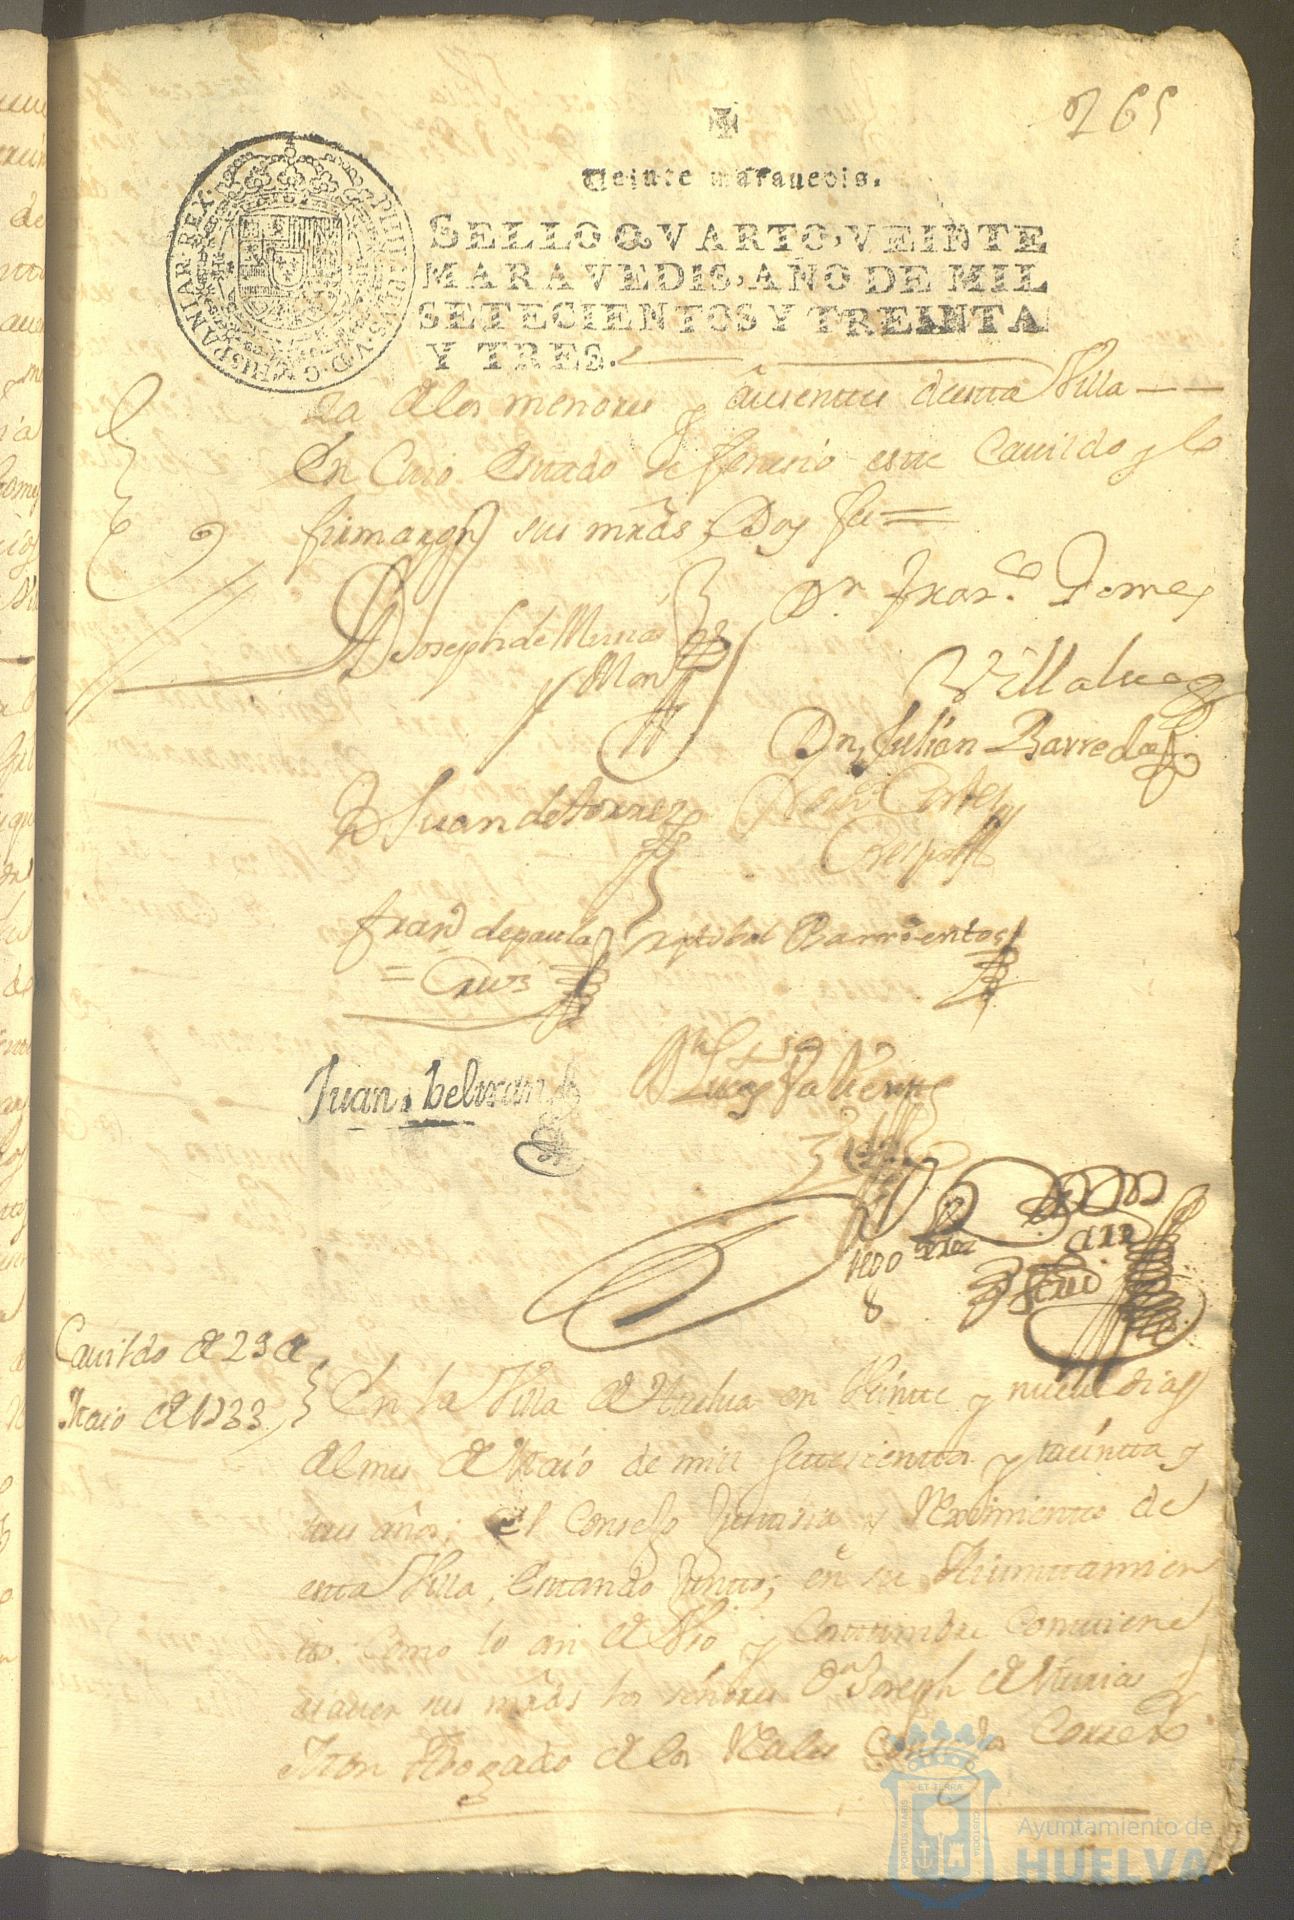 265
Veinte maravedis.
SELLO QVARTO, VEINTE
MARAVEDIS, AÑO DE MIL
SETECIENTOS Y TREINTA
Y TRES.
PHILIPPVS V D G HISPANIAR REX
za de los menores y ausentes desta Villa
En Cuio estado se feneció este Cauildo y lo
firmaron sus mrds, Doy fee =
Joseph de
Mon
Dr. Fran.co Gomez
Villalua
Dn Julian Barreda
Juan de torres
Cortes
Crespo
Fran.co de paula
= Cruz
xptobal Barrientos
Juan beltran
Lucas Valiente
Cauildo de 29 de
Maio de 1733
En la Villa de Huelua en Veinte y nueue dias
del mes de Maio de mill settesientos y treinta y
tres años; el Consejo Justisia y Reximiento de
esta Villa, estando juntos, en su Aiuntamien
to. Como lo an de Vso y Costumbre Combiene
asauer sus mrds los señores Dn Joseph de
Mon Abogado de los Reales Consejos Correx
PORTUS MARIS
ET TERRÆ
CUSTODIA
Ayuntamiento de
HUELVA